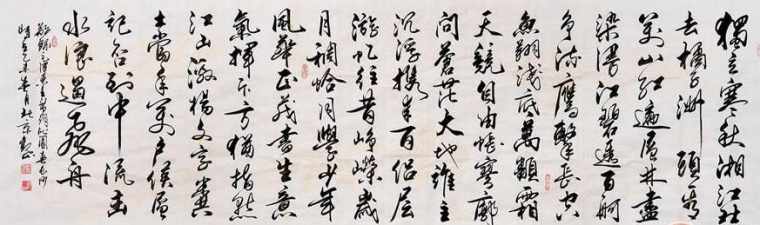 獨立寒秋湘江北
去橘子洲頭看
萬山紅遍層林盡
染漫江碧透百舸
爭流鷹擊長空
魚翔淺底萬類霜
天競自由悵寥廓
問蒼茫大地誰主
沉浮攜來百侶曾
遊憶往昔崢嶸歲
月稠恰同學少年
風華正茂書生意
氣揮斥方遒指點
江山激揚文字糞
土當年萬戶侯曾
記否到中流擊
水浪遏飛舟
敬錄毛澤東沁園春長沙
時在乙未春月北京